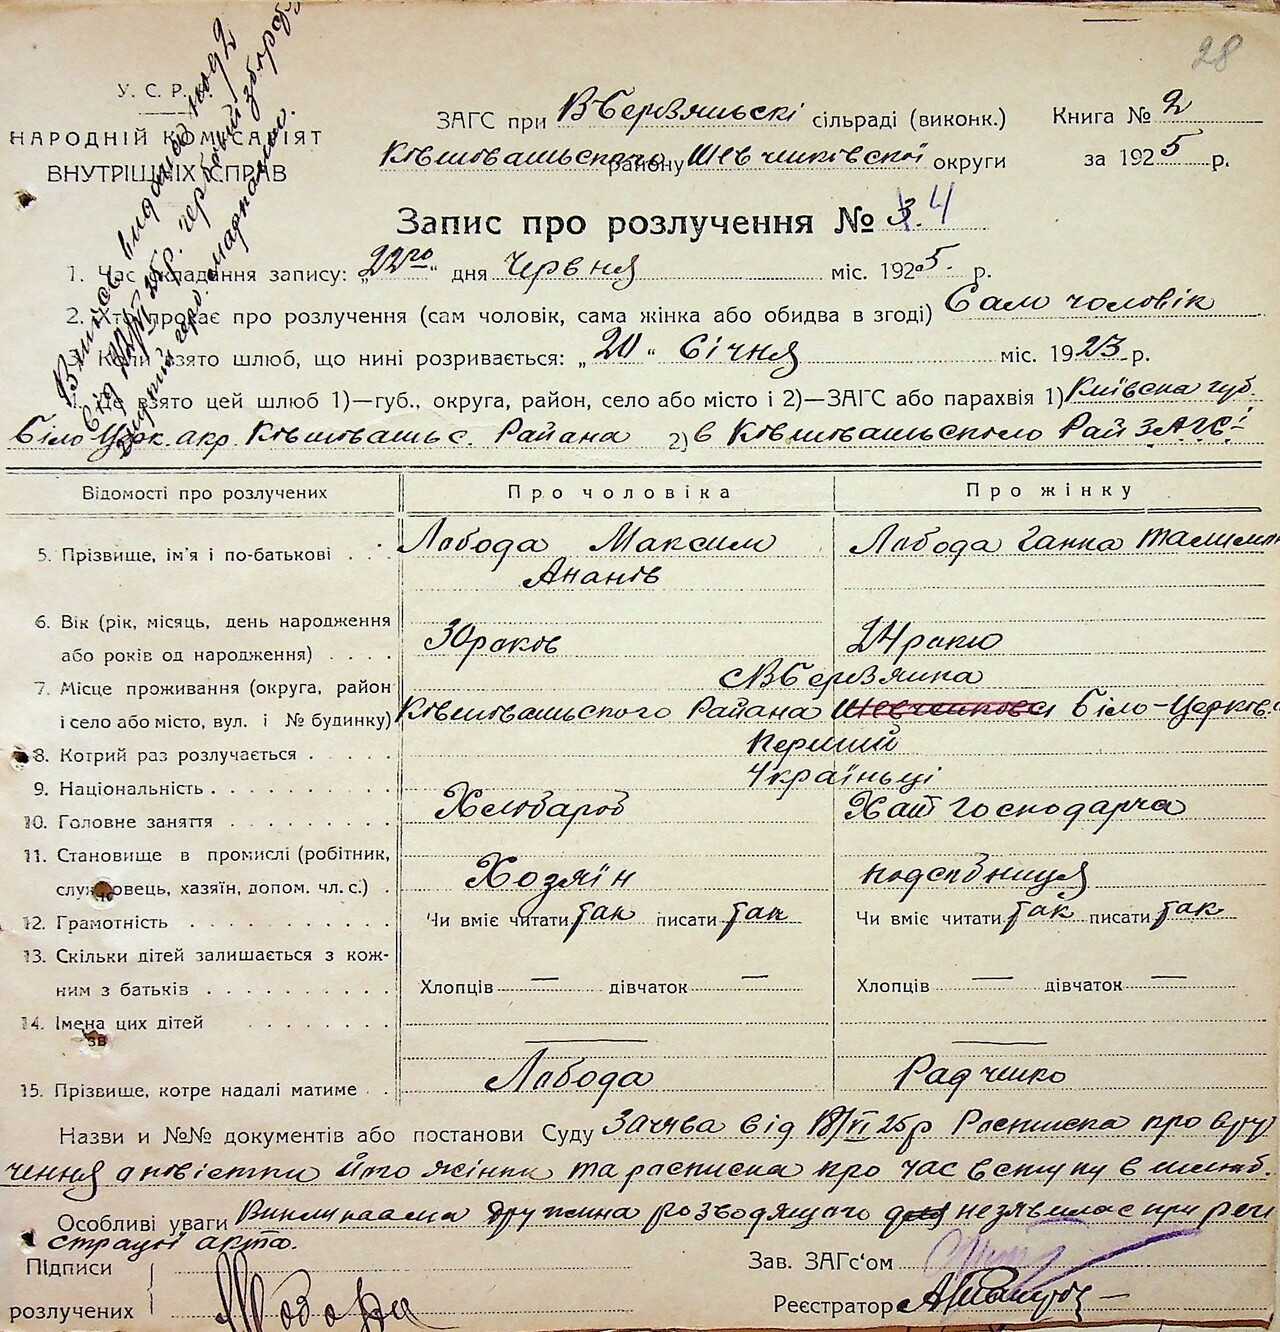 28
У. С. Р.
НАРОДНІЙ КОМІСАРІЯТ
ВНУТРІШНІХ СПРАВ
ЗАГС при В-Березянські сільраді (виконк.) Книга № 2
Ковшоватського району Шевченковскої округи за 1925 р.
Запис про розлучення № 4
1. Час складання запису: „22го“ дня Червня міс. 1925 р.
2. Хто прохає про розлучення (сам чоловік, сама жінка або обидва в згоді) Сам чоловік
3. Коли взято шлюб, що нині розривається: „20“ Січня міс. 1923 р.
4. Де взято цей шлюб 1)—губ., округа, район, село або місто і 2)—ЗАГС або парахвія 1) Київска губ.
Біло Церк. окр. Ковшоватьс. Района 2) в Ковшоватьского Рай ЗАГСі
Відомості про розлучених Про чоловіка Про жінку
5. Прізвище, ім'я і по-батькові Лобода Максим Лобода Ганна
Ананів
6. Вік (рік, місяць, день народження
або років од народження) 30 роков 24 роки
7. Місце проживання (округа, район
і село або місто, вул. і № будинку) Ковшоватьского Района Біло-Церков.
8. Котрий раз розлучається Перший
9. Національність Україньці
10. Головне заняття Хлобароб Хат господарча
11. Становище в промислі (робітник,
службовець, хазяїн, допом. чл. с.) Хозяїн подсобниця
12. Грамотність Чи вміє читати так писати так Чи вміє читати так писати так
13. Скільки дітей залишається з кож-
ним з батьків Хлопців — дівчаток — Хлопців — дівчаток —
14. Імена цих дітей
15. Прізвище, котре надалі матиме Лобода Радченко
Назви и №№ документів або постанови Суду Заява від 18/VI 25р Росписка про вру
чення повістки його жінки та росписка про час вступу в шлюб.
Особливі уваги дружина розводящого незявилас при реги
страції акта.
Підписи
розлучених Лобода
Зав. ЗАГс'ом
Реєстратор